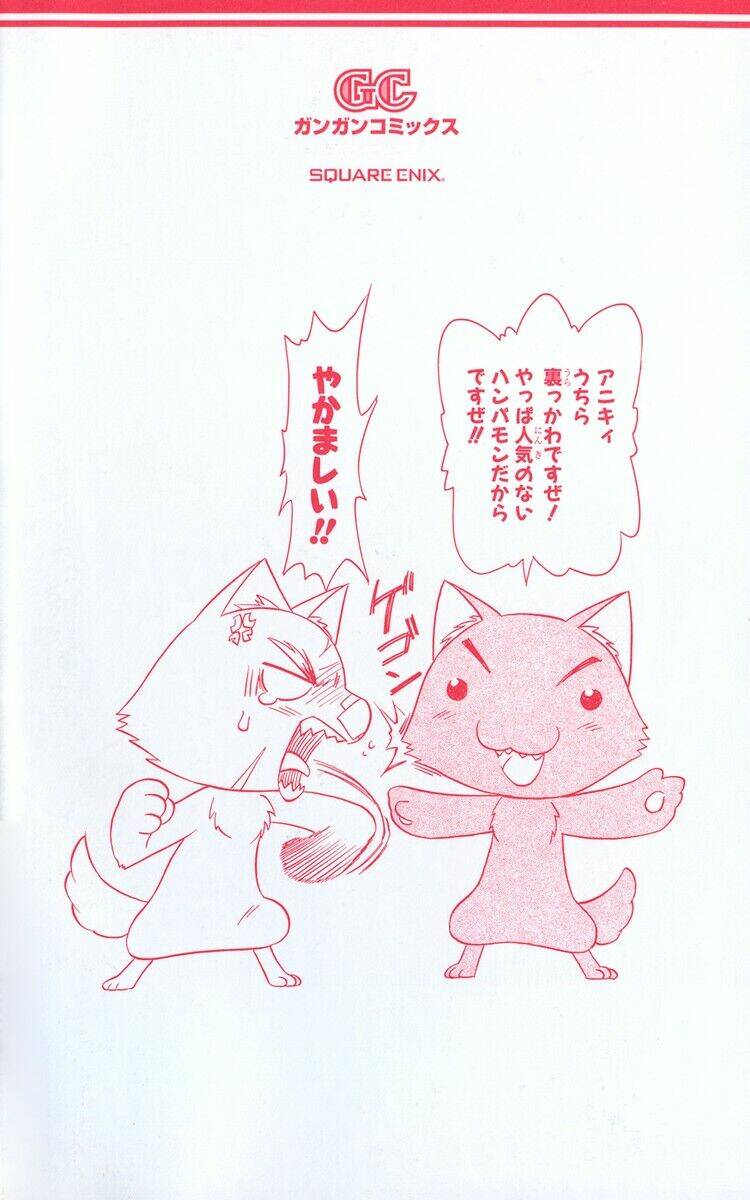 GC
ガンガンコミックス
SQUARE ENIX.
アニキィ
うちら
裏っかわですぜ!
やっぱ人気のない
ハンパモンだから
ですぜ!!
やかましい!!
ゲゴン